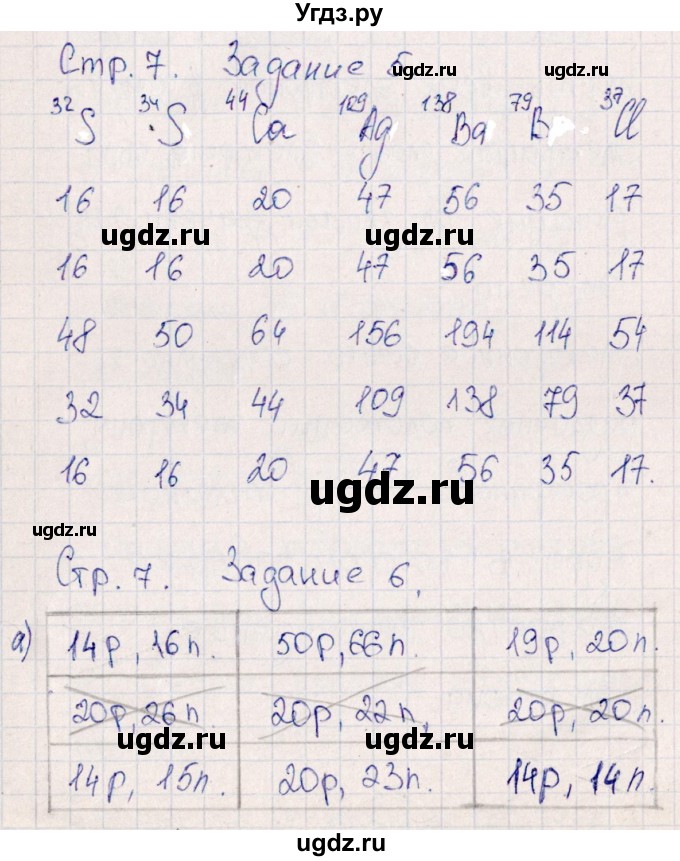 Угдз.ру
Стр. 7. Задание 5
ugdz.ru ugdz.ru
³²S ³⁴S ⁴⁴Ca ¹⁰⁹Ag ¹³⁸Ba ⁷⁹Br ³⁷Cl
16 16 20 47 56 35 17
ugdz.ru ugdz.ru
16 16 20 47 56 35 17
48 50 64 156 194 114 54
32 34 44 109 138 79 37
16 16 20 47 56 35 17.
ugdz.ru
ugdz.ru
Стр. 7. Задание 6.
а) 14p, 16n. 50p, 66n. 19p, 20n.
20p, 26n 20p, 22n. 20p, 20n.
ugdz.ru ugdz.ru
14p, 15n. 20p, 23n. 14p, 14n.
ugdz.ru